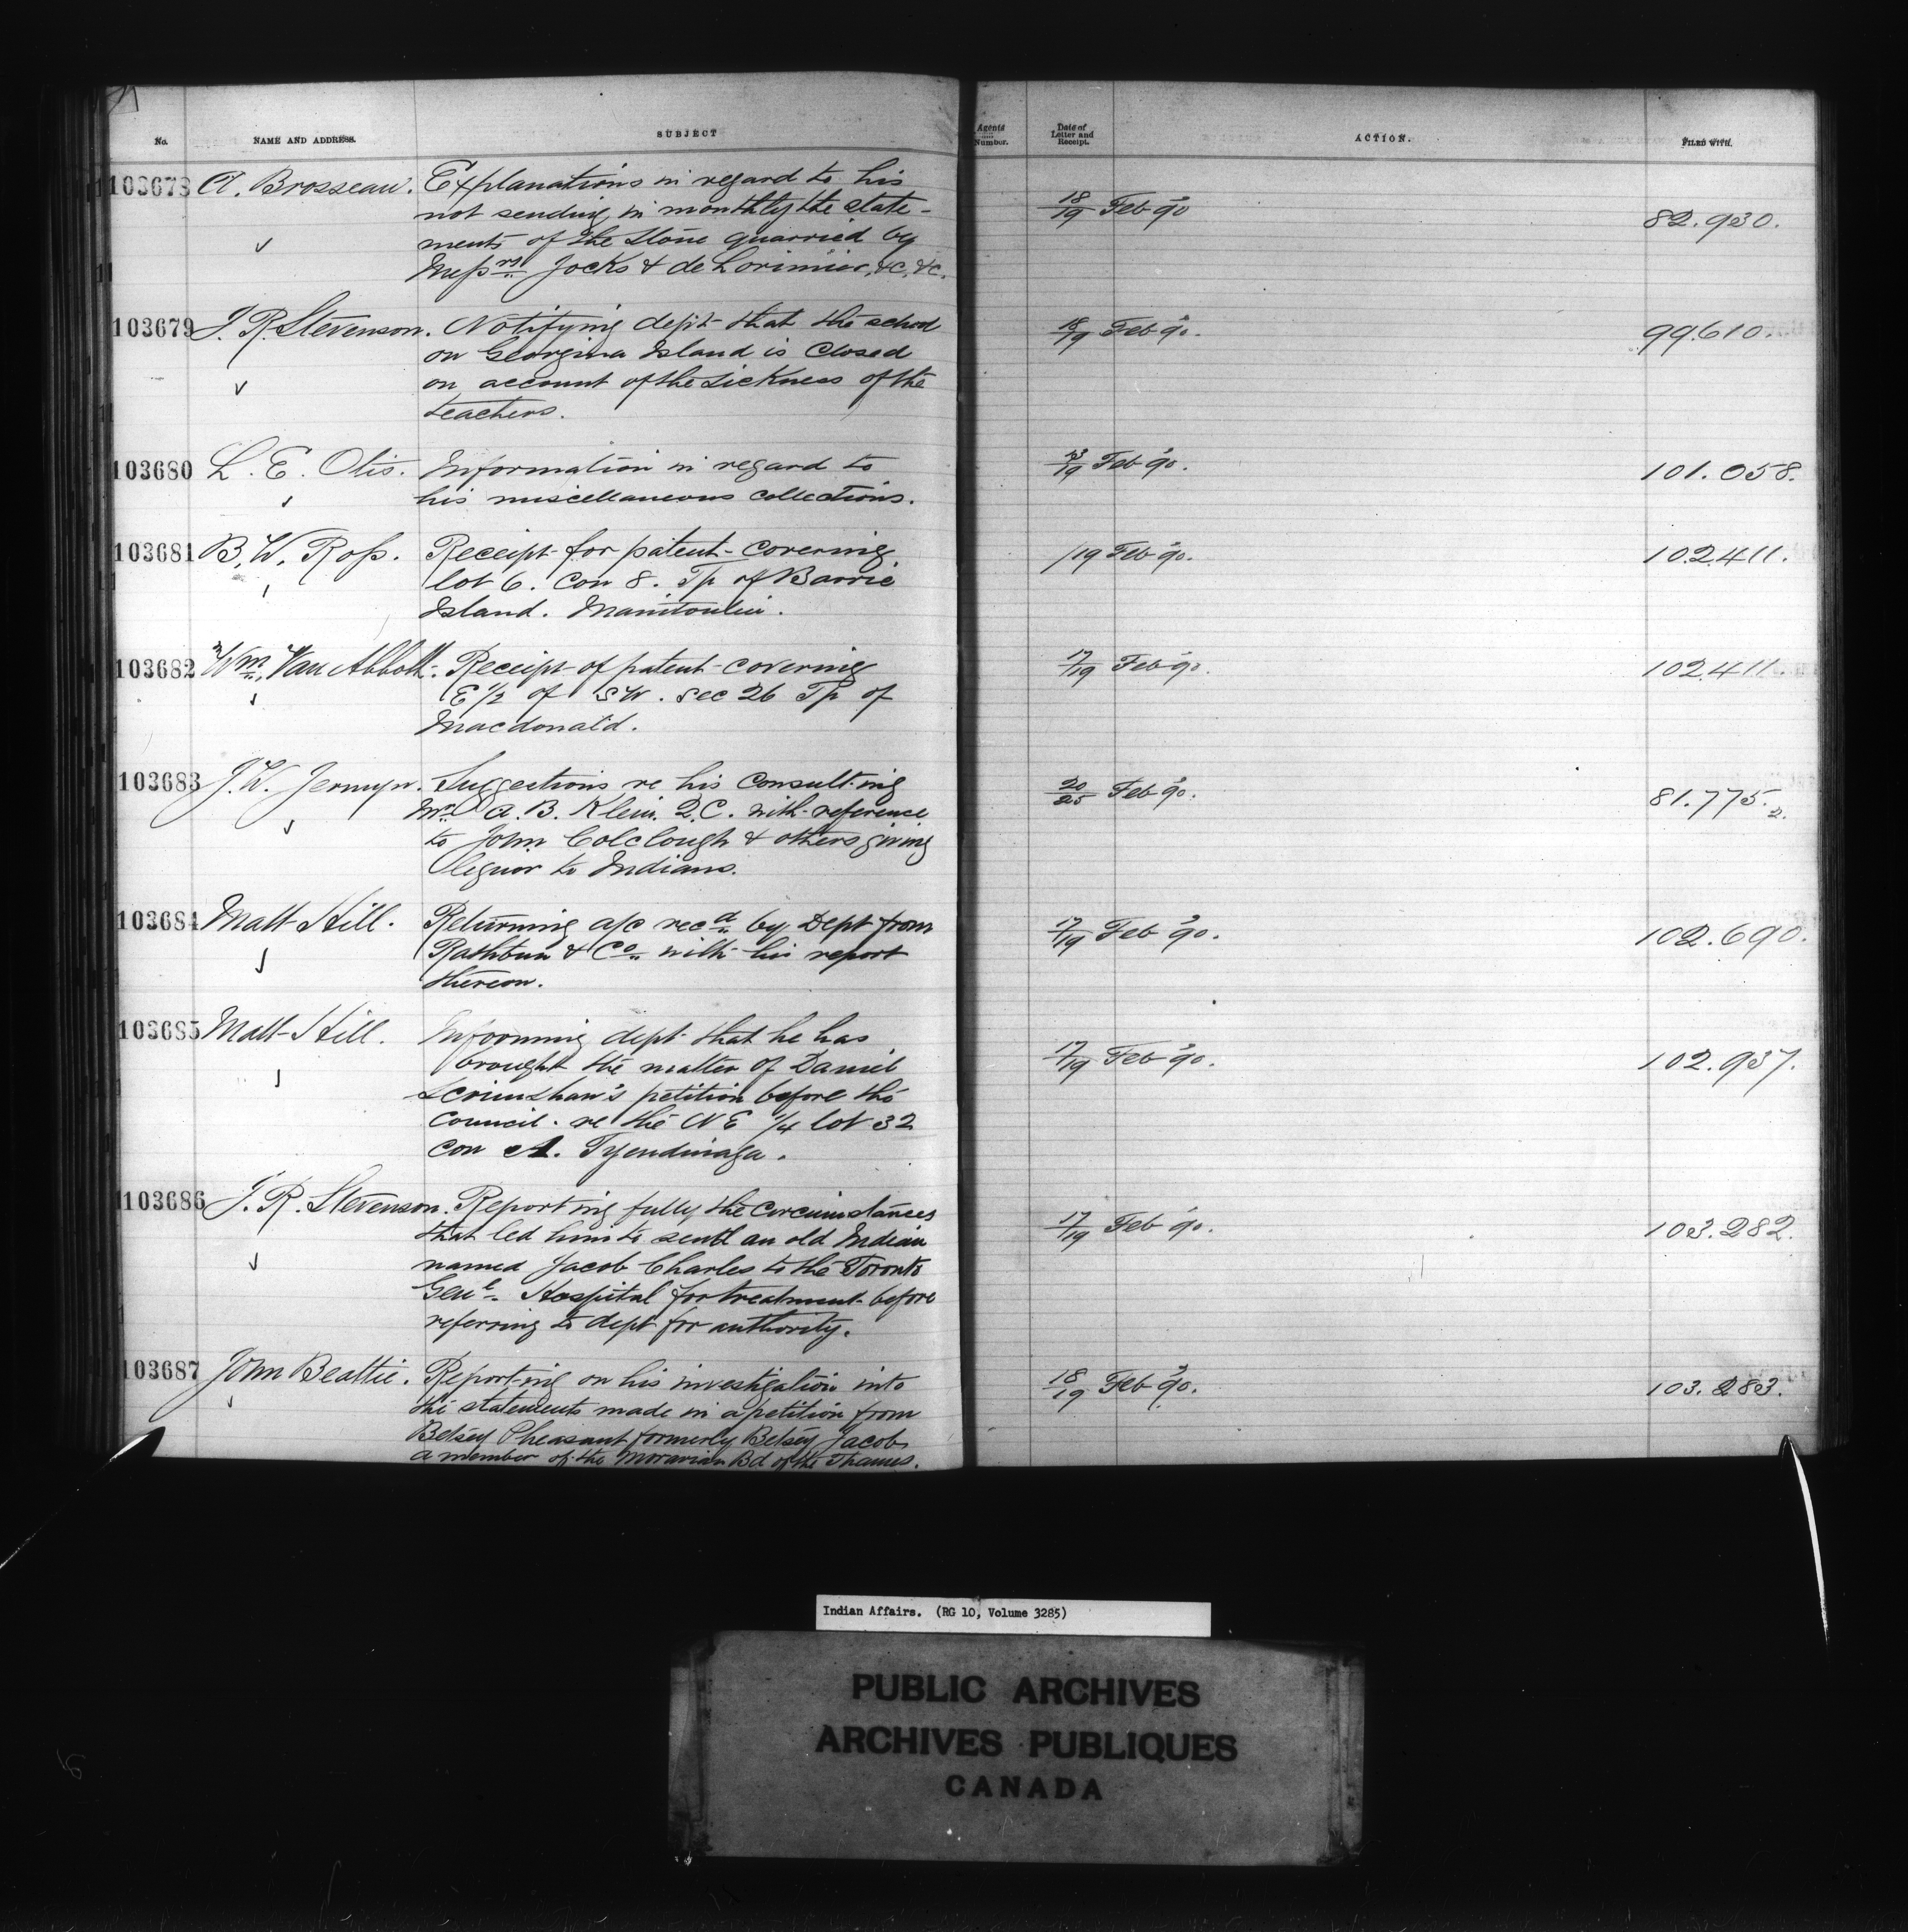 No. NAME AND ADDRESS. SUBJECT Agents Number. Date of Letter and Receipt. ACTION. FILED WITH.
103678 A. Brosseau. Explanations in regard to his
not sending in monthly the state-
ments of the stone quarried by
Messrs Jocks & de Lorimier, &c. &c.
18/19 Feb 90 82.930.
103679 J. R. Stevenson. Notifying dept that the school
on Georgina Island is closed
on account of the sickness of the
teachers.
18/19 Feb 90. 99.610.
103680 L. E. Otis. Information in regard to
his miscellaneous collections.
13/19 Feb 90. 101.058.
103681 B. W. Ross. Receipt for patent covering
lot 6. Con 8. Tp of Barrie
Island. Manitoulin.
/19 Feb 90. 102.411.
103682 Wm. Van Abbott. Receipt of patent covering
E 1/2 of SW. sec 26 Tp of
Macdonald.
17/19 Feb 90. 102.411.
103683 J. W. Jermyn. Suggestions re his consulting
Mr A. B. Klein. Q.C. with reference
to John Colclough & others giving
liquor to Indians.
20/25 Feb 90. 81.775.2.
103684 Matt Hill. Returning a/c recd by Dept from
Rathbun & Co with his report
thereon.
17/19 Feb 90. 102.690.
103685 Matt Hill. Informing dept that he has
brought the matter of Daniel
Scrimshaw's petition before the
Council. re the NE 1/4 lot 32
Con A. Tyendinaga.
17/19 Feb 90. 102.937.
103686 J. R. Stevenson. Reporting fully the circumstances
that led him to send an old Indian
named Jacob Charles to the Toronto
Genl. Hospital for treatment before
referring to dept for authority.
17/19 Feb 90. 103.282.
103687 John Beattie. Reporting on his investigation into
the statements made in a petition from
Betsey Pheasant formerly Betsey Jacobs
a member of the Moravian Bd of the Thames.
18/19 Feb 90. 103.283.
Indian Affairs. (RG 10, Volume 3285)
PUBLIC ARCHIVES
ARCHIVES PUBLIQUES
CANADA